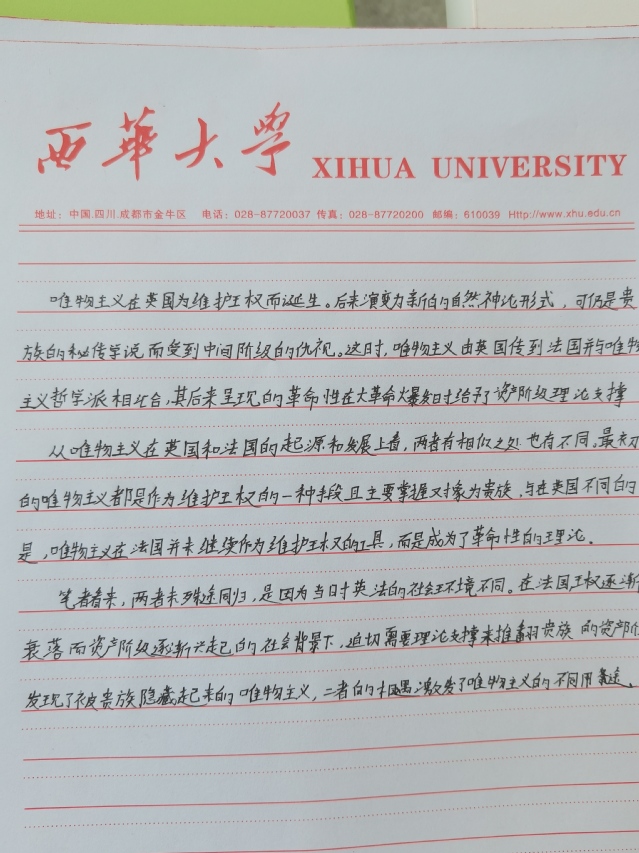 西華大學 XIHUA UNIVERSITY
地址：中国.四川.成都市金牛区 电话：028-87720037 传真：028-87720200 邮编：610039 Http://www.xhu.edu.cn
唯物主义在英国为维护王权而诞生。后来演变为新的自然神论形式，可仍是贵
族的秘传学说而受到中间阶级的仇视。这时，唯物主义由英国传到法国并与唯物
主义哲学派相结合，其后来呈现的革命性在大革命爆发时给予了资产阶级理论支撑
从唯物主义在英国和法国的起源和发展上看，两者有相似之处也有不同。最初
的唯物主义都是作为维护王权的一种手段且主要掌握对象为贵族，与在英国不同的
是，唯物主义在法国并未继续作为维护王权的工具，而是成为了革命性的理论。
笔者看来，两者未殊途同归，是因为当时英法的社会环境不同。在法国王权逐渐
衰落而资产阶级逐渐兴起的社会背景下，迫切需要理论支撑来推翻贵族的资产阶
发现了被贵族隐藏起来的唯物主义，二者的相遇激发了唯物主义的不同用途